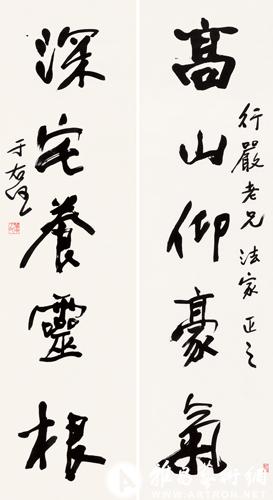 高山仰豪氣
行嚴老兄 法家正之
深宅養靈根
于右任
雅昌藝術網
WWW.ARTRON.NET